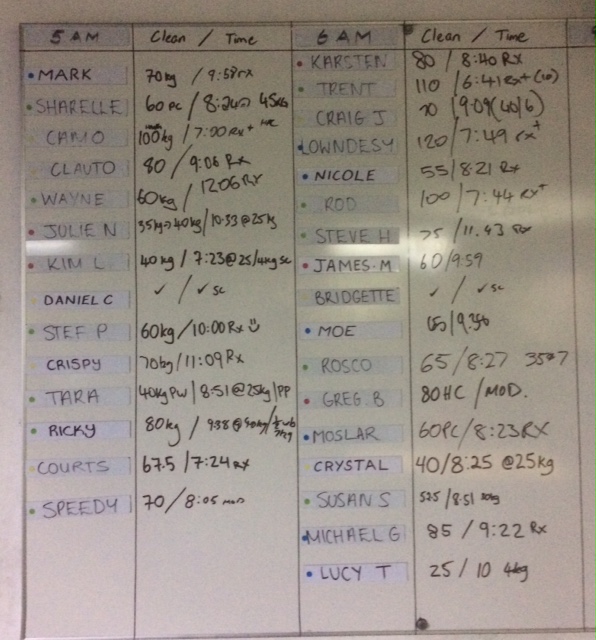 5 AM Clean / Time
MARK 70kg / 9:58 rx
SHARELLE 60 PC / 8:24 45kg
CAMO 100kg / 7:00 Rx+
CLAUTO 80 / 9:06 Rx
WAYNE 60kg / 1206 RX
JULIE N 35kg→40kg / 10:33 @ 25kg
KIM L 40kg / 7:23 @ 25/4kg sc
DANIEL C ✓ / ✓ sc
STEF P 60kg / 10:00 Rx ☺
CRISPY 70kg / 11:09 Rx
TARA 40kg PW / 8:51 @ 25kg / PP
RICKY 80kg / 9:38 @
COURTS 67.5 / 7:24 Rx
SPEEDY 70 / 8:05 mod
6 AM Clean / Time
KARSTEN 80 / 8:40 Rx
TRENT 110 / 6:41 Rx+ (10)
CRAIG J 70 / 9:09 (40/6)
LOWNDESY 120 / 7:49 rx+
NICOLE 55 / 8:21 Rx
ROD 100 / 7:44 Rx+
STEVE H 75 / 11.43 Rx
JAMES.M 60 / 9:59
BRIDGETTE ✓ / ✓ sc
MOE
ROSCO 65 / 8:27
GREG.B 80HC / MOD.
MOSLAR 60PC / 8:23 RX
CRYSTAL 40 / 8:25 @25kg
SUSAN S 52.5 / 8:51
MICHAEL G 85 / 9:22 Rx
LUCY T 25 / 10